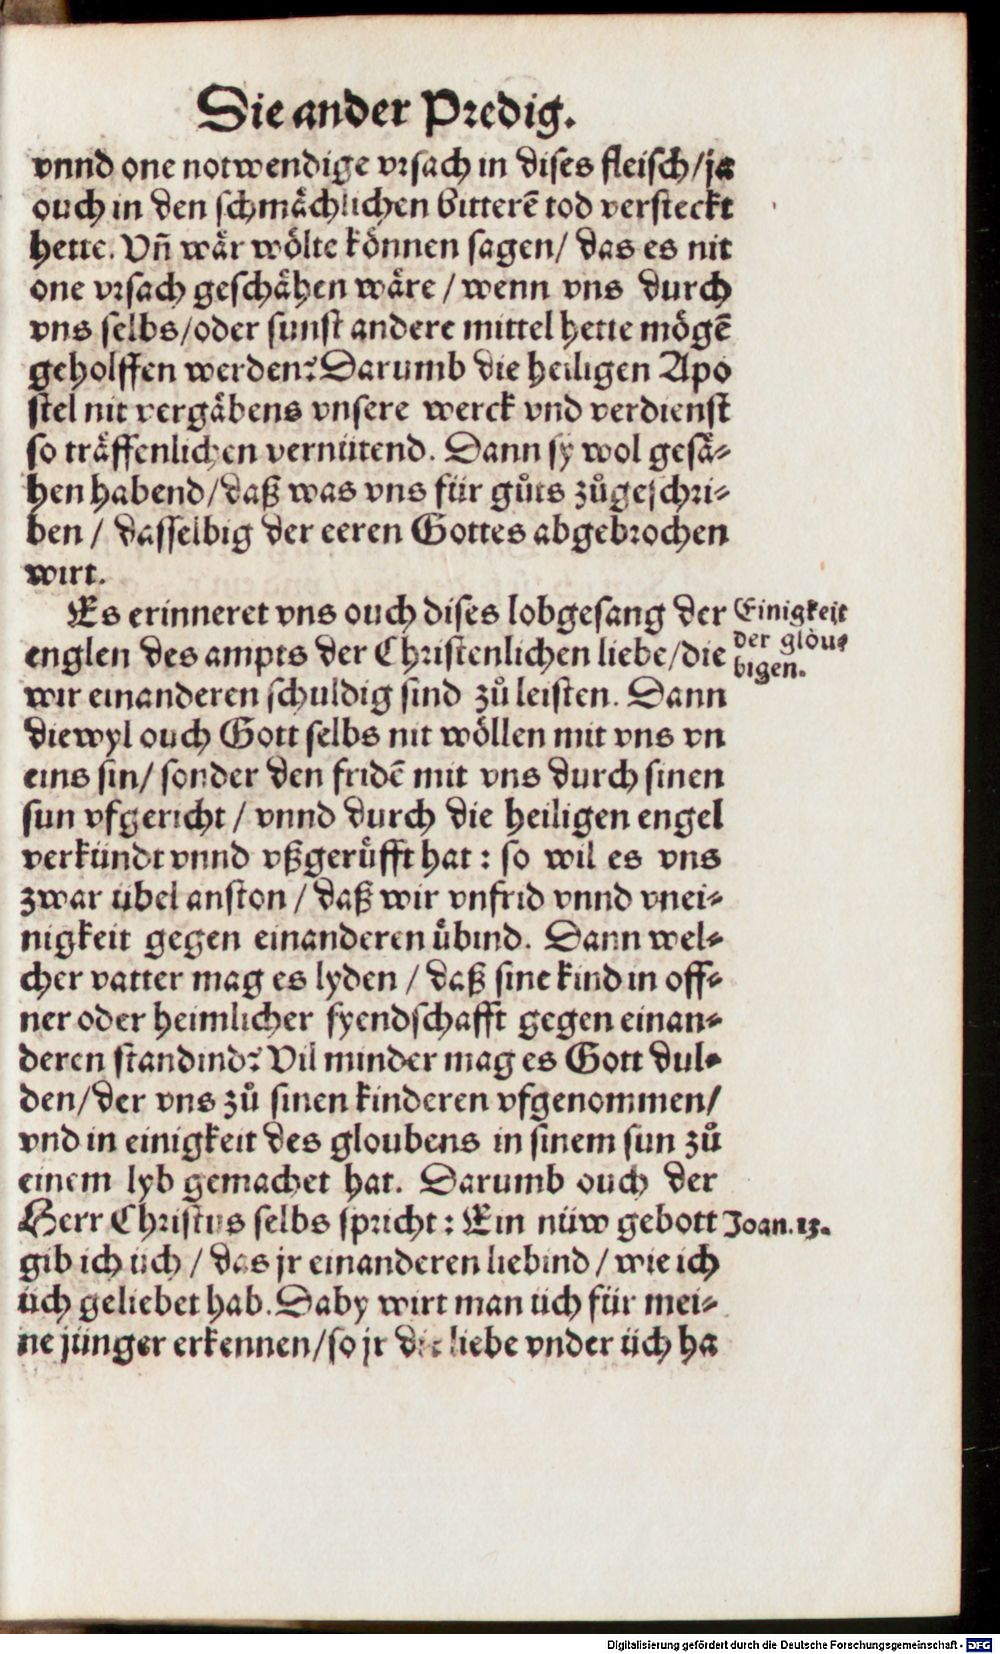 Die ander Predig.
vnnd one notwendige vrsach in dises fleisch/ja
ouch in den schmaͤchlichen bitterē tod versteckt
hette. Vn̄ waͤr woͤlte koͤnnen sagen/ das es nit
one vrsach geschaͤhen waͤre / wenn vns durch
vns selbs/oder sunst andere mittel hette moͤgē
geholffen werden? Darumb die heiligen Apo
stel nit vergaͤbens vnsere werck vnd verdienst
so traͤffenlichen vernütend. Dann sy wol gesaͤ-
hen habend/daß was vns für guͦts zuͦgeschri-
ben / dasselbig der eeren Gottes abgebrochen
wirt.
Es erinneret vns ouch dises lobgesang der
englen des ampts der Christenlichen liebe/die
wir einanderen schuldig sind zuͦ leisten. Dann
diewyl ouch Gott selbs nit woͤllen mit vns vn
eins sin/ sonder den fridē mit vns durch sinen
sun vfgericht / vnnd durch die heiligen engel
verkündt vnnd vßgeruͤfft hat : so wil es vns
zwar übel anston / daß wir vnfrid vnnd vnei-
nigkeit gegen einanderen uͤbind. Dann wel-
cher vatter mag es lyden / daß sine kind in off-
ner oder heimlicher fyendschafft gegen einan-
deren standind? Vil minder mag es Gott dul-
den/der vns zuͦ sinen kinderen vfgenommen/
vnd in einigkeit des gloubens in sinem sun zuͦ
einem lyb gemachet hat. Darumb ouch der
Herr Christus selbs spricht : Ein nüw gebott
gib ich üch / das jr einanderen liebind / wie ich
üch geliebet hab. Daby wirt man üch für mei-
ne jünger erkennen/so jr die liebe vnder üch ha
Einigkeit
der gloͤu-
bigen.
Joan.13.
Digitalisierung gefördert durch die Deutsche Forschungsgemeinschaft - DFG